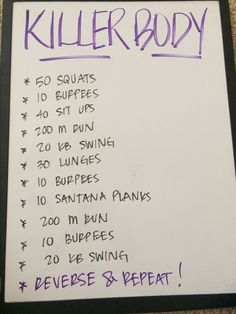 KILLER BODY
* 50 SQUATS
* 10 BURPEES
* 40 SIT UPS
* 200 M RUN
* 20 KB SWING
* 30 LUNGES
* 10 BURPEES
* 10 SANTANA PLANKS
* 200 M RUN
* 10 BURPEES
* 20 KB SWING
* REVERSE & REPEAT!